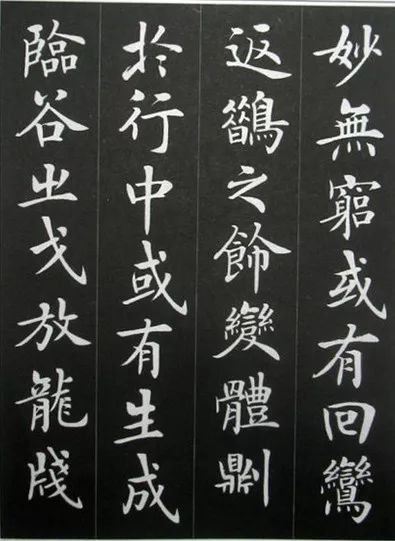 妙無窮或有回鸞
返鵲之飾變體則
於行中或有生成
臨谷㞢戈放龍牋